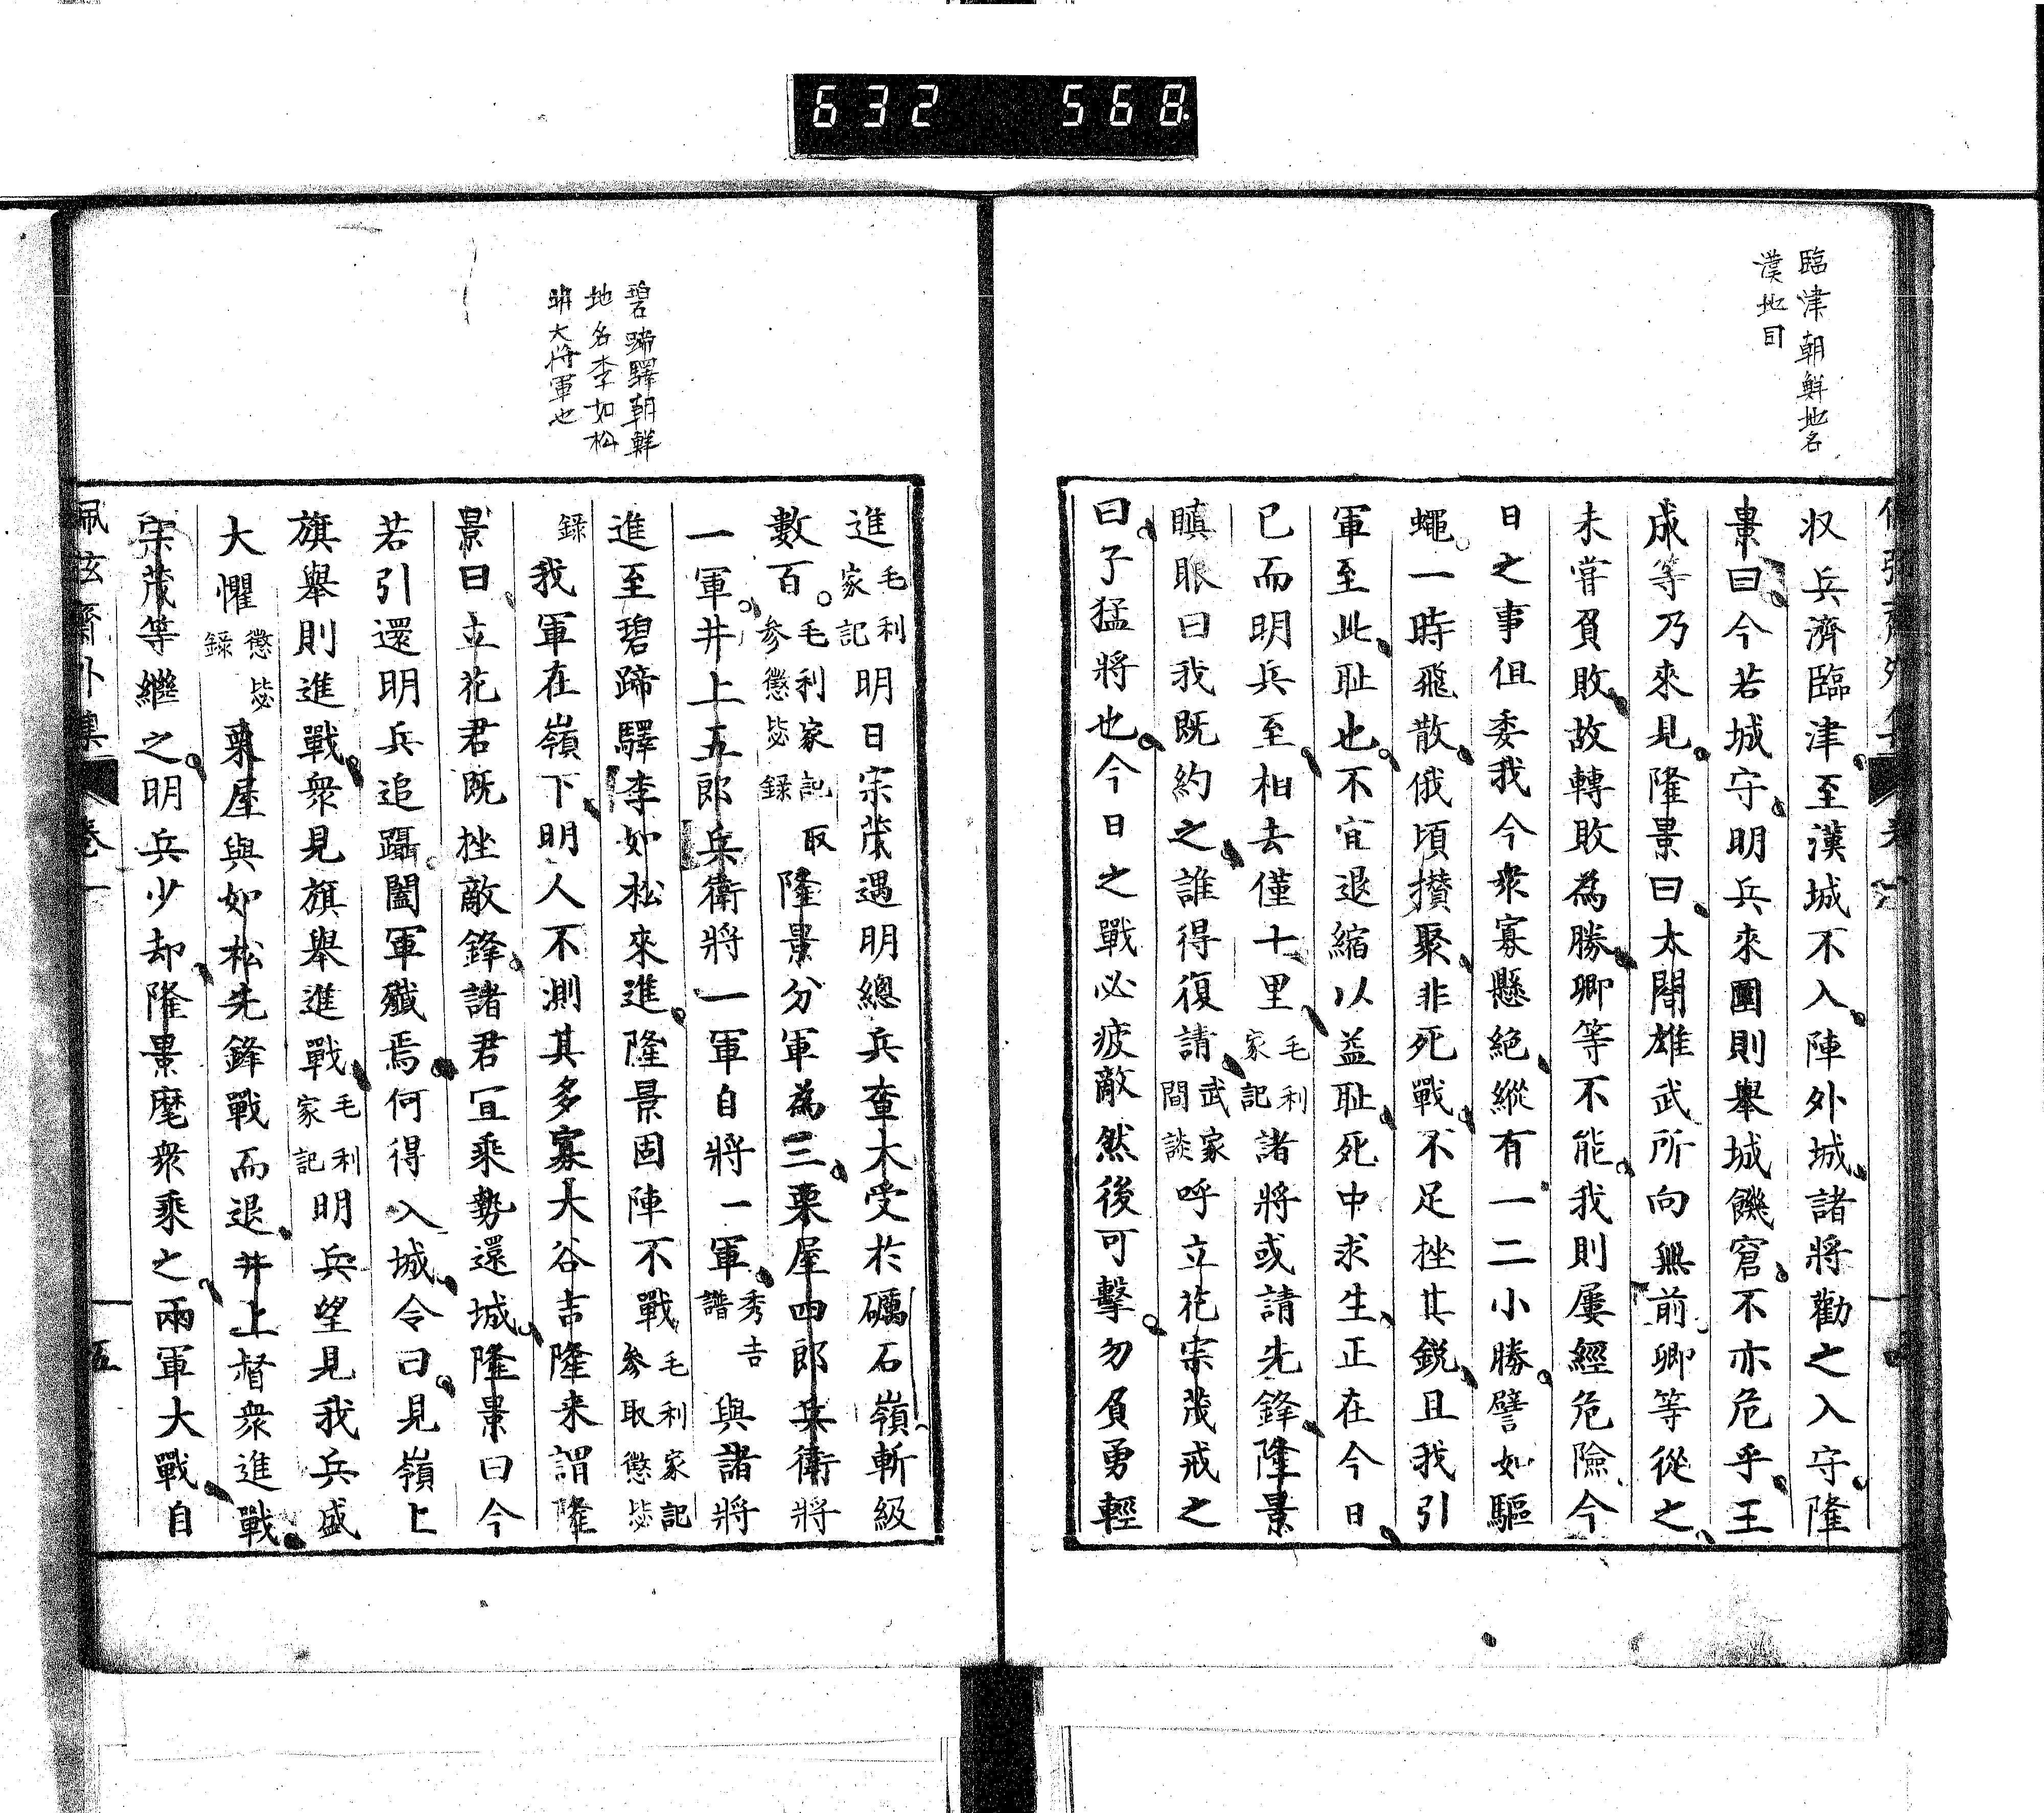 632 568
臨津朝鮮地名
漢地同
収兵濟臨津至漢城不入陣外城諸將勸之入守隆
景曰今若城守明兵來圍則舉城饑窘不亦危乎王
成等乃來見隆景曰太閤雄武所向無前卿等從之
未嘗負敗故轉敗為勝卿等不能我則屢經危險今
日之事但委我今衆寡懸絶縱有一二小勝譬如驅
蠅一時飛散俄頃攅聚非死戰不足挫其鋭且我引
軍至此耻也不宜退縮以益耻死中求生正在今日
已而明兵至相去僅十里毛利家記諸將或請先鋒隆景
瞋眼曰我既約之誰得復請武家間談呼立花宗茂戒之
曰子猛將也今日之戰必疲敵然後可擊勿負勇輕
碧蹄驛朝鮮
地名李如松
明大將軍也
進毛利家記明日宗茂遇明總兵查大受於礪石嶺斬級
數百毛利家記参懲毖録取隆景分軍為三粟屋四郎兵衛將
一軍井上五郎兵衛將一軍自將一軍秀吉譜與諸將
進至碧蹄驛李如松來進隆景固陣不戰毛利家記参取懲毖
録我軍在嶺下明人不測其多寡大谷吉隆来謂隆
景曰立花君既挫敵鋒諸君宜乘勢還城隆景曰今
若引還明兵追躡闔軍殲焉何得入城令曰見嶺上
旗舉則進戰衆見旗舉進戰毛利家記明兵望見我兵盛
大懼懲毖録粟屋與如松先鋒戰而退井上督衆進戰
宗茂等繼之明兵少却隆景麾衆乘之兩軍大戰自
佩弦齋外集 卷一 五